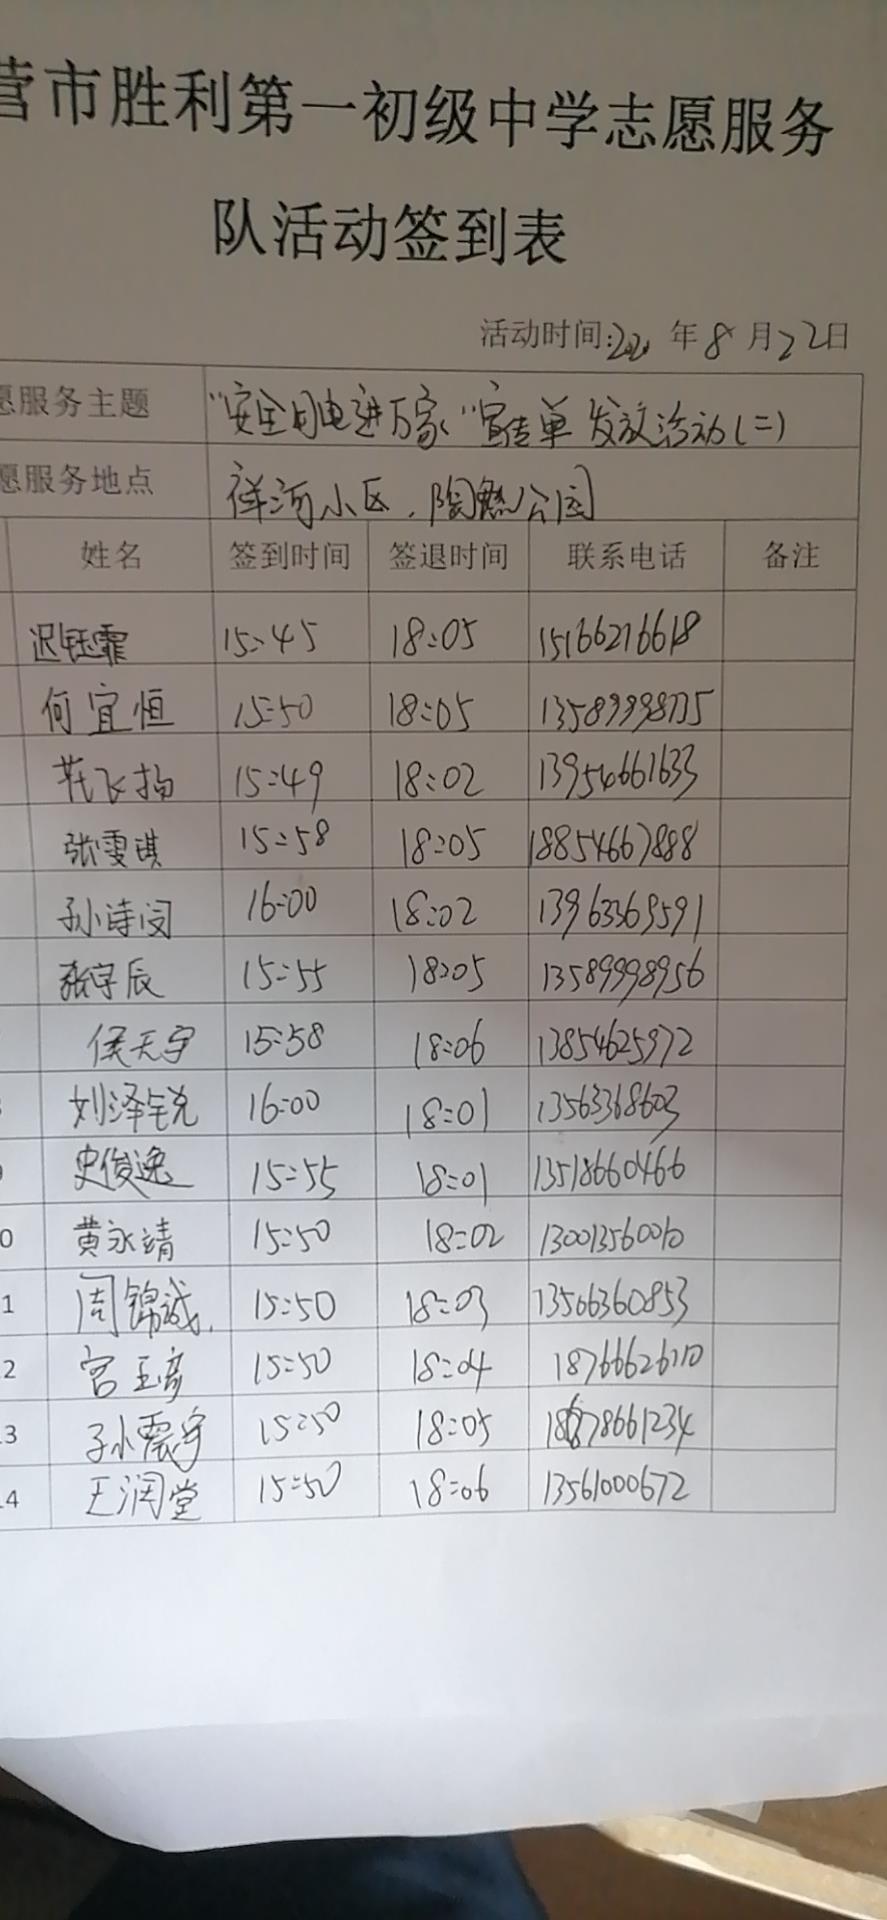 营市胜利第一初级中学志愿服务
队活动签到表
活动时间:202 年8月22日
愿服务主题 "安全用电进万家"宣传单发放活动(二)
愿服务地点 祥河小区、陶然公园
姓名 签到时间 签退时间 联系电话 备注
迟钰霏 15:45 18:05 15166216618
何宜恒 15:50 18:05
苑飞扬 15:49 18:02 13954661633
张雯琪 15:58 18:05 18854667888
孙诗闵 16:00 18:02 13963369591
张宇辰 15:55 18:05 13589998956
侯天宇 15:58 18:06 13854625972
刘泽锐 16:00 18:01 13563368603
史俊逸 15:55 18:01 13518660466
10 黄永靖 15:50 18:02 130013560010
11 周锦诚 15:50 18:03 13566360853
12 宫玉彦 15:50 18:04
13 孙震宇 15:50 18:05 18678661234
14 王润堂 15:50 18:06 13561000672